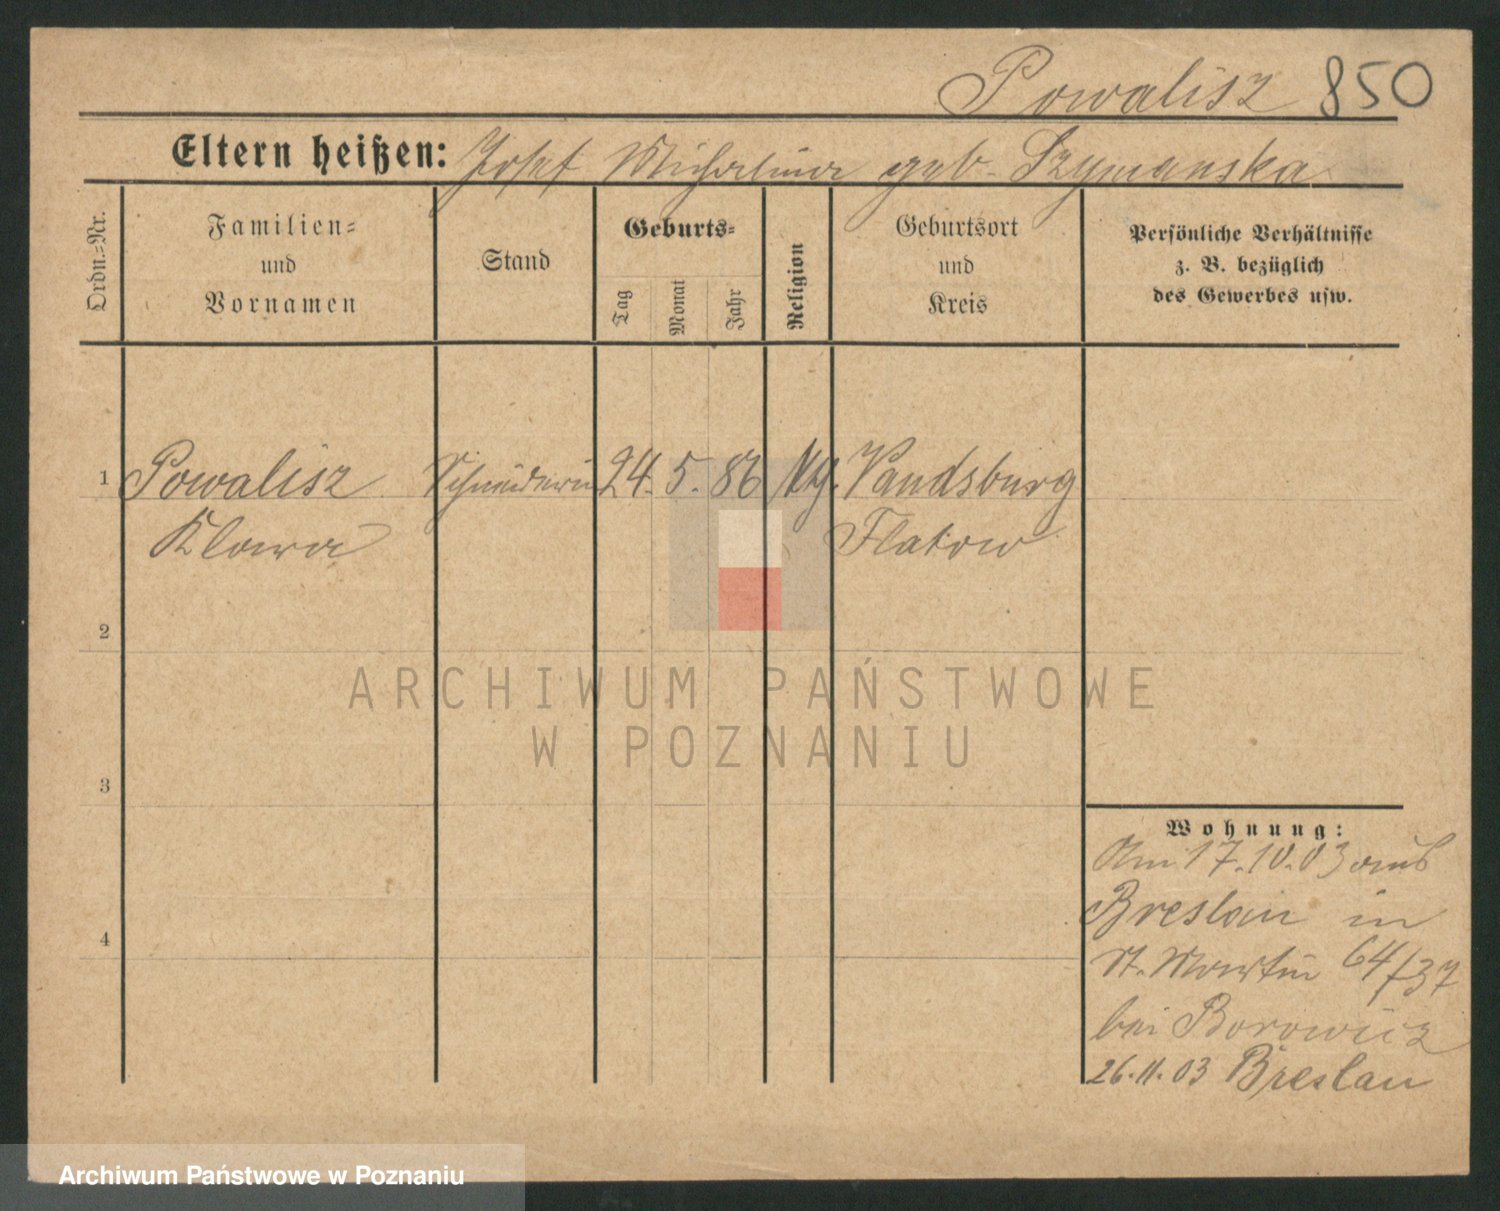 Powalisz 850
Eltern heißen: Josef Michalina geb. Szymanska
Ordn.-Nr.
Familien-
und
Vornamen
Stand
Geburts-
Tag
Monat
Jahr
Religion
Geburtsort
und
Kreis
Persönliche Verhältnisse
z. B. bezüglich
des Gewerbes usw.
1 Powalisz Schneiderin 24. 5. 86 Vandsburg
Klara Flatow
2
3
4
ARCHIWUM PAŃSTWOWE
W POZNANIU
Wohnung:
Am 17.10.03 aus
Breslau in
St. Martin 64/37
bei Borowicz
26.11.03 Breslau
Archiwum Państwowe w Poznaniu